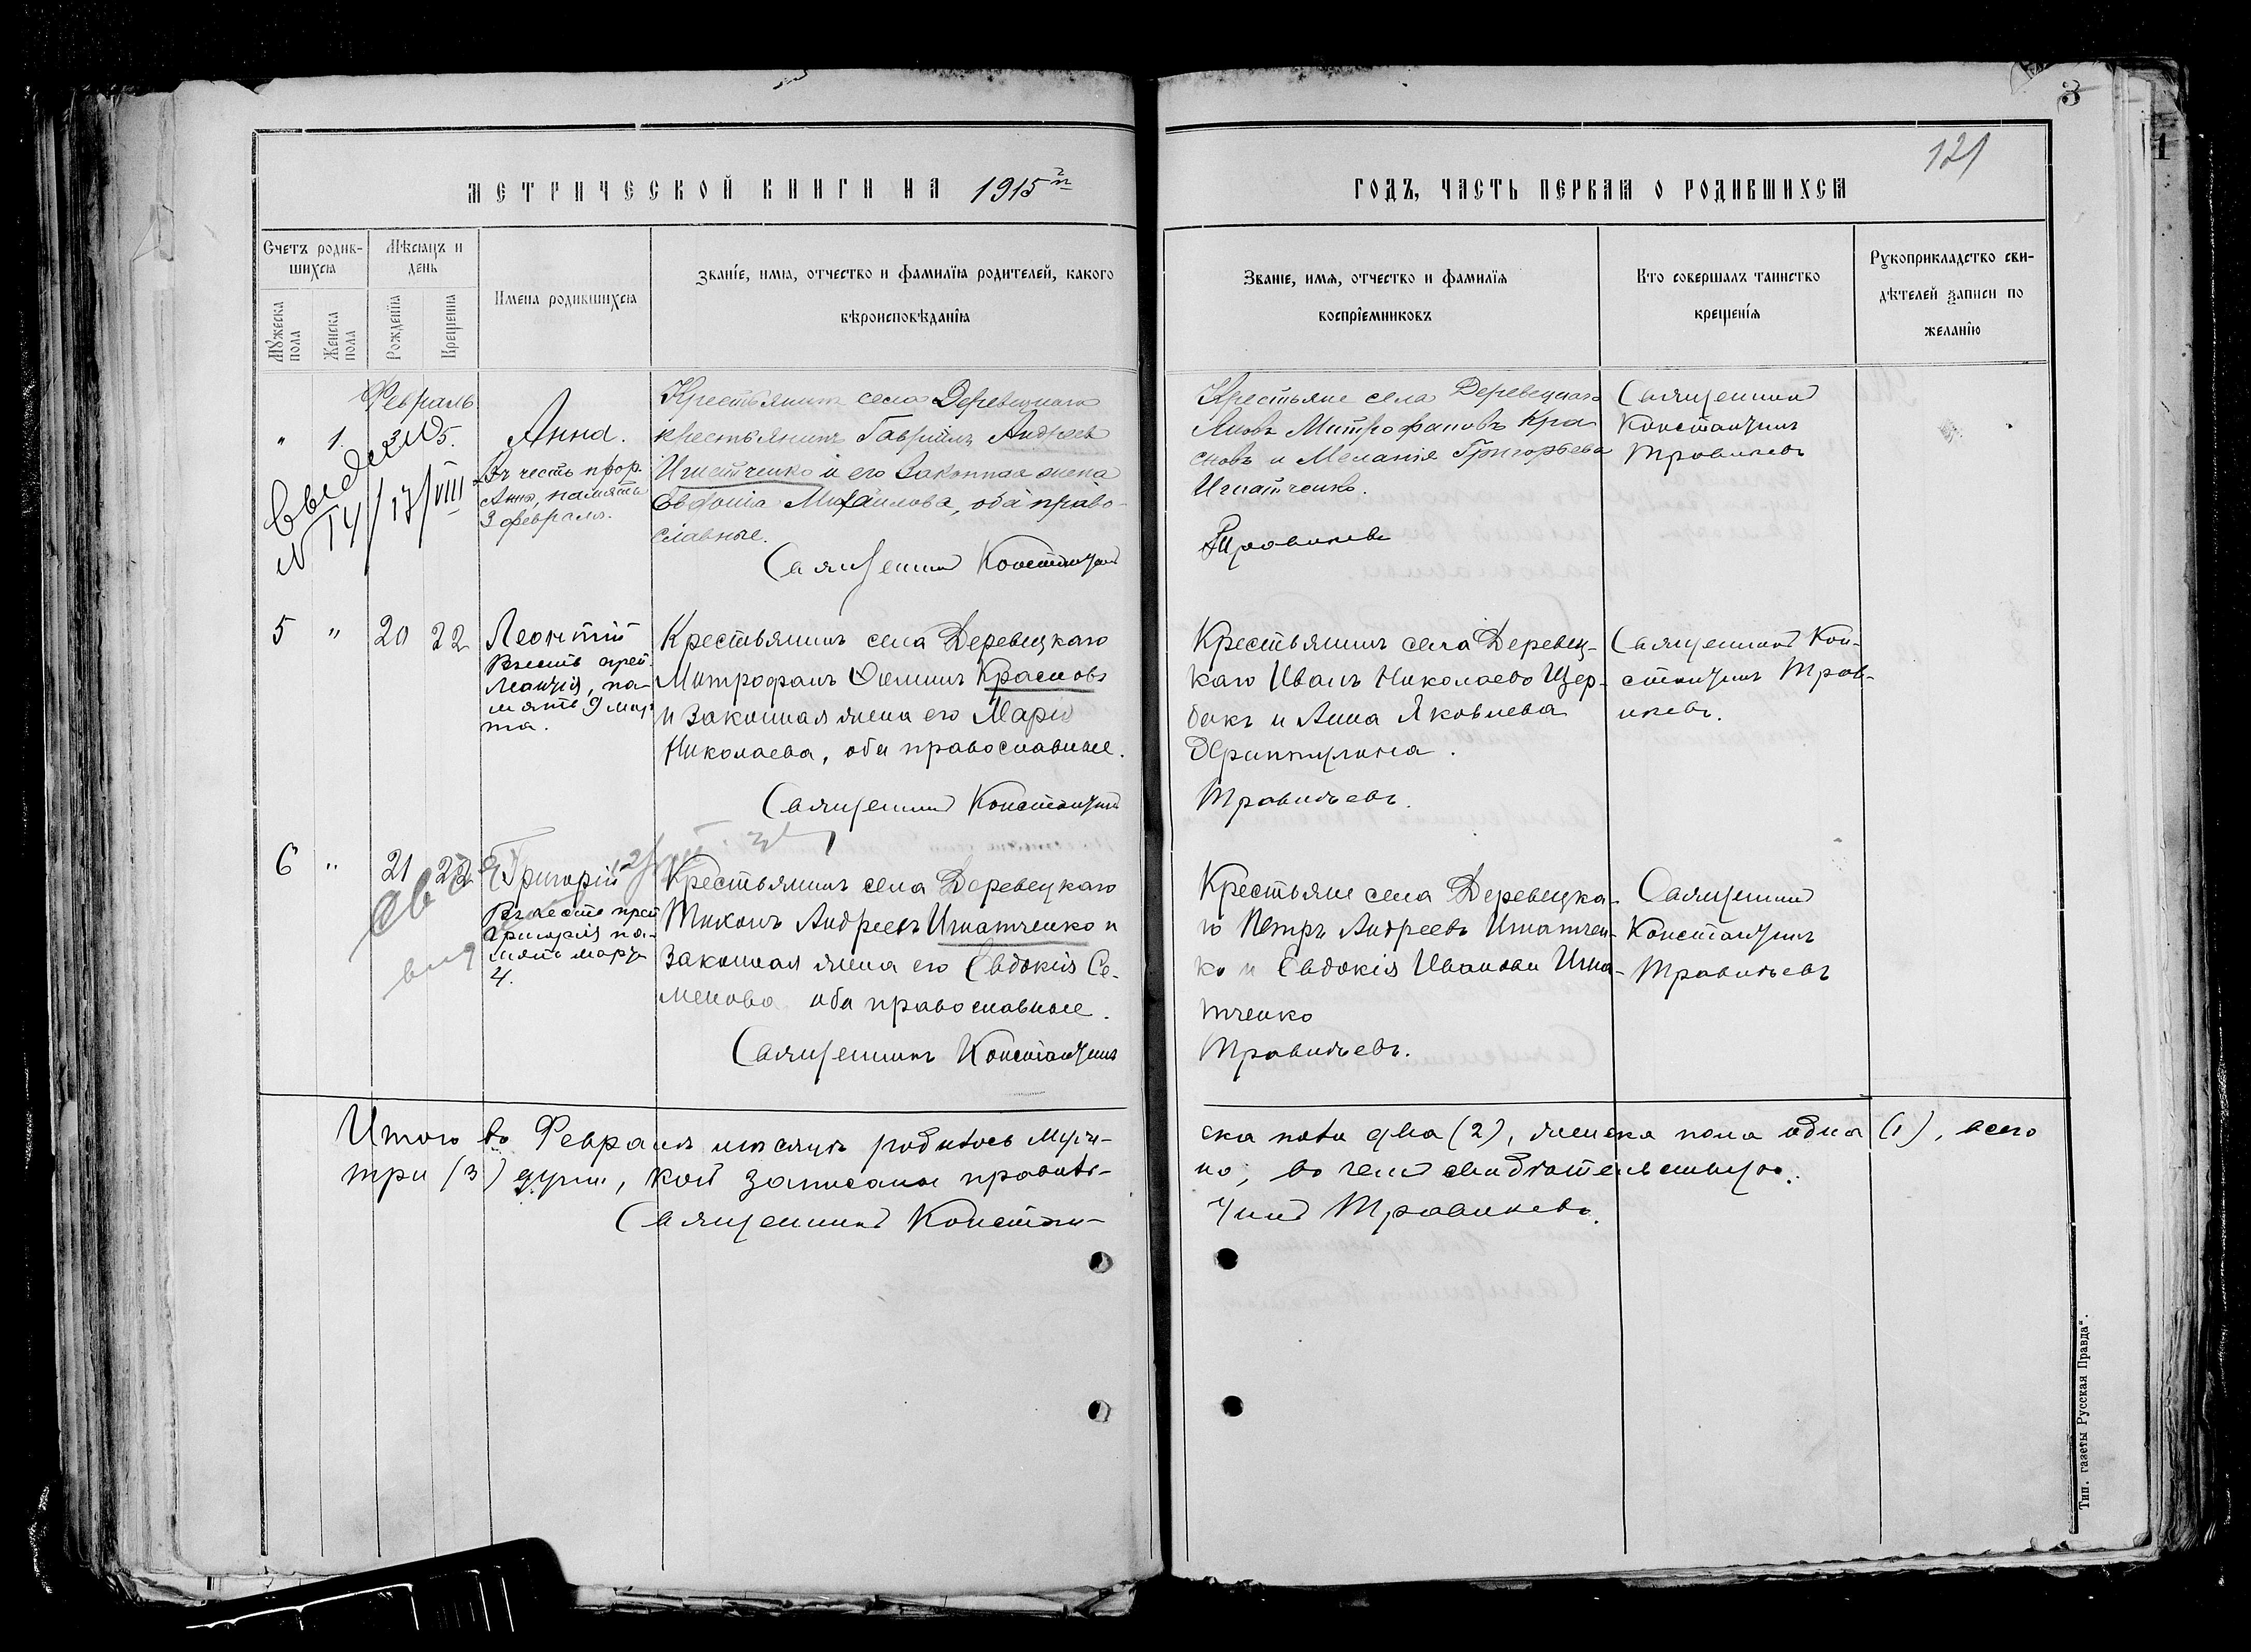 3
121
МЕТРИЧЕСКОЙ КНИГИ НА 1915
ГОДЪ, ЧАСТЬ ПЕРВАЯ О РОДИВШИХСЯ
Счетъ родив-
шихся
Мѣсяцъ и
день
Мужеска
пола
Женска
пола
Рожденія
Крещенія
Имена родившихся
Званіе, имя, отчество и фамилія родителей, какого
вѣроисповѣданія
Званіе, имя, отчество и фамилія
воспріемниковъ
Кто совершалъ таинство
крещенія
Рукоприкладство сви-
дѣтелей записи по
желанію
Февраль
" 1. 3 5.
Анна.
Въ честь прор.
Анны, память
3 февраля.
N 14/17/VIII
Крестьянинъ села Деревецкаго
крестьянинъ Гавріилъ Андреевъ
Игнатченко и его законная жена
Михаилова, оба право-
славные.
Священникъ Константинъ
Крестьяне села Деревецкаго
Яковъ Митрофановъ Кра
сновъ и Меланія Григорьева
Игнатченко.
Травиневъ
Священникъ
Константинъ
Травиневъ
5 " 20 22
Леонтій
Въ честь
Леонтія, па-
мять 9 мар-
та.
Крестьянинъ села Деревецкаго
Митрофанъ Красновъ
и законная жена его Марія
Николаева, оба православные.
Священникъ Константинъ
Крестьянинъ села Деревец-
каго Иванъ Николаевъ Щер-
бакъ и Анна Яковлева
Травиневъ.
Священникъ Кон-
стантинъ Трав-
иневъ.
6 " 21 22
Григорій
Въ честь преп
Григорія па-
мять марта
4.
Крестьянинъ села Деревецкаго
Тихонъ Андреевъ Игнатченко и
законная жена его Евдокія Се-
менова оба православные.
Священникъ Константинъ
Крестьяне села Деревецка-
го Петръ Андреевъ Игнатчен-
ко и Евдокія Иванова Игна-
тченко
Травиневъ.
Священникъ
Константинъ
Травиневъ
Итого въ Февралѣ мѣсяцѣ родилось муже-
ска пола два (2), женска пола одна (1), всего
три (3) души, кои записаны правиль-
но, въ чемъ свидѣтельствую.
Священникъ Констан-
тинъ Травиневъ.
Тип. газеты Русская Правда".